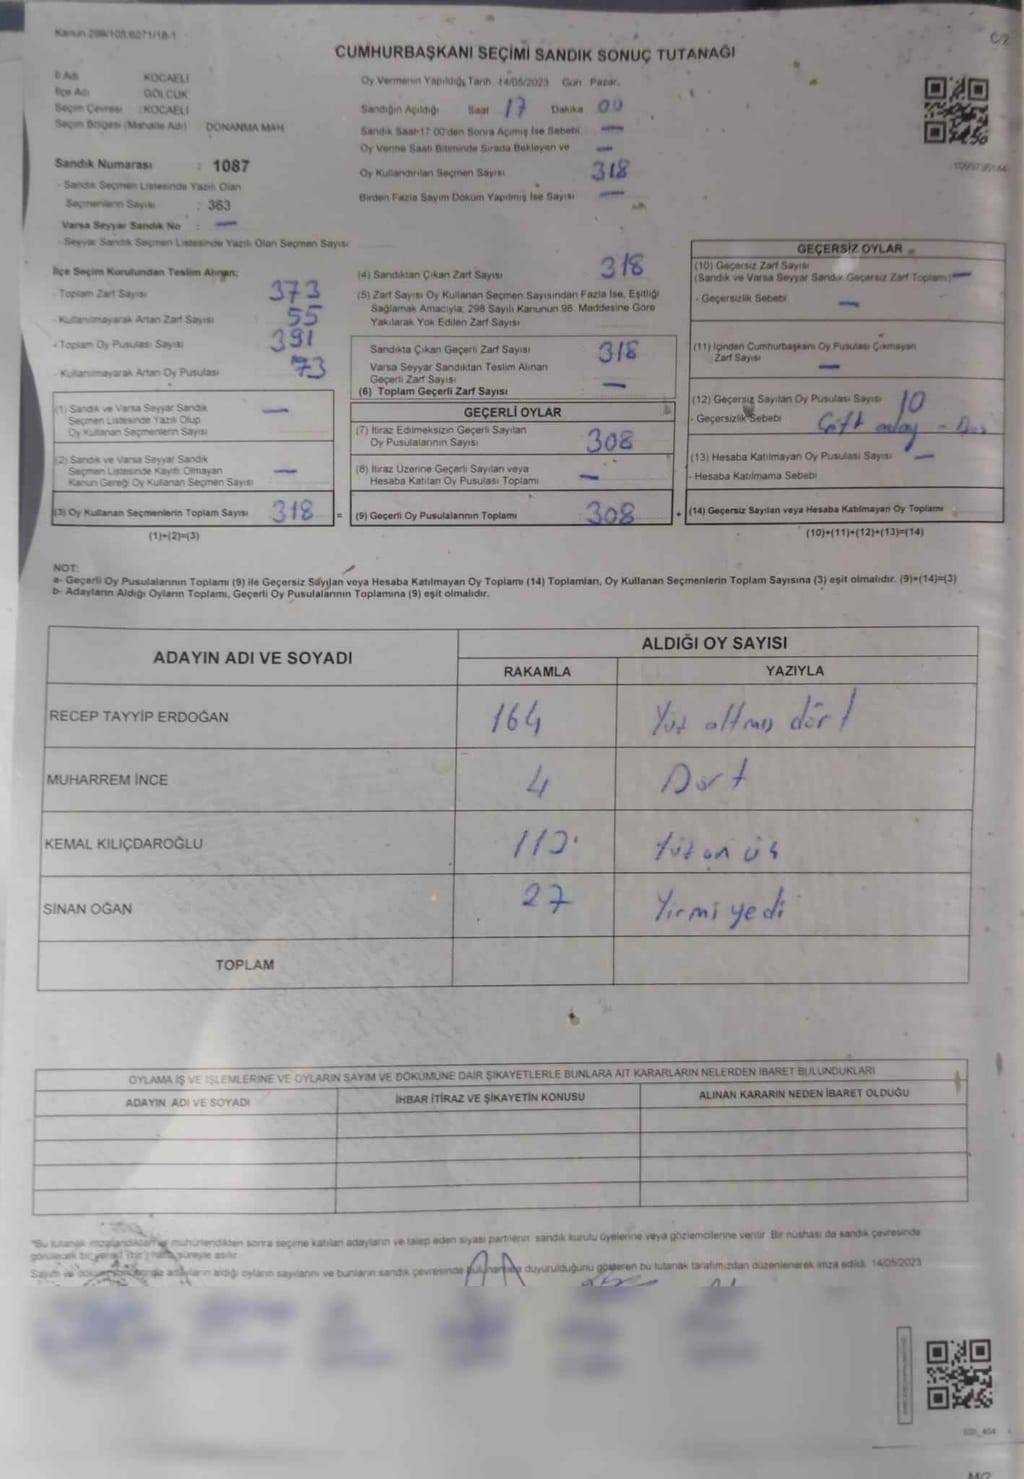 Kanun 298/105.6271/18-1
C/2
CUMHURBAŞKANI SEÇİMİ SANDIK SONUÇ TUTANAĞI
İl Adı KOCAELİ
İlçe Adı GÖLCÜK
Seçim Çevresi : KOCAELİ
Seçim Bölgesi (Mahalle Adı) DONANMA MAH
Sandık Numarası : 1087
- Sandık Seçmen Listesinde Yazılı Olan
Seçmenlerin Sayısı : 363
Varsa Seyyar Sandık No : —
- Seyyar Sandık Seçmen Listesinde Yazılı Olan Seçmen Sayısı:
Oy Vermenin Yapıldığı Tarih 14/05/2023 Gün Pazar.
Sandığın Açıldığı Saat 17 Dakika 00
Sandık Saat-17:00'den Sonra Açılmış İse Sebebi —
Oy Verme Saati Bitiminde Sırada Bekleyen ve —
Oy Kullandırılan Seçmen Sayısı 318
Birden Fazla Sayım Döküm Yapılmış İse Sayısı —
İlçe Seçim Kurulundan Teslim Alınan:
- Toplam Zarf Sayısı 373
- Kullanılmayarak Artan Zarf Sayısı 55
- Toplam Oy Pusulası Sayısı 391
- Kullanılmayarak Artan Oy Pusulası 73
(1) Sandık ve Varsa Seyyar Sandık —
Seçmen Listesinde Yazılı Olup
Oy Kullanan Seçmenlerin Sayısı
(2) Sandık ve Varsa Seyyar Sandık
Seçmen Listesinde Kayıtlı Olmayan —
Kanun Gereği Oy Kullanan Seçmen Sayısı
(3) Oy Kullanan Seçmenlerin Toplam Sayısı 318 =
(1)+(2)=(3)
(4) Sandıktan Çıkan Zarf Sayısı 318
(5) Zarf Sayısı Oy Kullanan Seçmen Sayısından Fazla İse, Eşitliği
Sağlamak Amacıyla, 298 Sayılı Kanunun 98. Maddesine Göre
Yakılarak Yok Edilen Zarf Sayısı
Sandıkta Çıkan Geçerli Zarf Sayısı 318
Varsa Seyyar Sandıktan Teslim Alınan
Geçerli Zarf Sayısı —
(6) Toplam Geçerli Zarf Sayısı
GEÇERLİ OYLAR
(7) İtiraz Edilmeksizin Geçerli Sayılan
Oy Pusulalarının Sayısı 308
(8) İtiraz Üzerine Geçerli Sayılan veya
Hesaba Katılan Oy Pusulası Toplamı —
(9) Geçerli Oy Pusulalarının Toplamı 308 +
GEÇERSİZ OYLAR
(10) Geçersiz Zarf Sayısı
(Sandık ve Varsa Seyyar Sandık Geçersiz Zarf Toplamı) —
- Geçersizlik Sebebi —
(11) İçinden Cumhurbaşkanı Oy Pusulası Çıkmayan
Zarf Sayısı —
(12) Geçersiz Sayılan Oy Pusulası Sayısı 10
- Geçersizlik Sebebi Çift aday
(13) Hesaba Katılmayan Oy Pusulası Sayısı —
- Hesaba Katılmama Sebebi
(14) Geçersiz Sayılan veya Hesaba Katılmayan Oy Toplamı
(10)+(11)+(12)+(13)=(14)
NOT:
a- Geçerli Oy Pusulalarının Toplamı (9) ile Geçersiz Sayılan veya Hesaba Katılmayan Oy Toplamı (14) Toplamları, Oy Kullanan Seçmenlerin Toplam Sayısına (3) eşit olmalıdır. (9)+(14)=(3)
b- Adayların Aldığı Oyların Toplamı, Geçerli Oy Pusulalarının Toplamına (9) eşit olmalıdır.
ADAYIN ADI VE SOYADI
ALDIĞI OY SAYISI
RAKAMLA YAZIYLA
RECEP TAYYİP ERDOĞAN 164 Yüz altmış dört
MUHARREM İNCE 4 Dört
KEMAL KILIÇDAROĞLU 113 Yüz on üç
SİNAN OĞAN 27 Yirmi yedi
TOPLAM
OYLAMA İŞ VE İŞLEMLERİNE VE OYLARIN SAYIM VE DÖKÜMÜNE DAİR ŞİKAYETLERLE BUNLARA AİT KARARLARIN NELERDEN İBARET BULUNDUKLARI
ADAYIN ADI VE SOYADI İHBAR İTİRAZ VE ŞİKAYETİN KONUSU ALINAN KARARIN NEDEN İBARET OLDUĞU
"Bu tutanak imzalandıktan mühürlendikten sonra seçime katılan adayların ve talep eden siyasi partilerin sandık kurulu üyelerine veya gözlemcilerine verilir. Bir nüshası da sandık çevresinde
görülecek bir yerde (bir) hafta süreyle asılır.
adayların aldığı oyların sayılarını ve bunların sandık çevresinde duyurulduğunu gösteren bu tutanak tarafımızdan düzenlenerek imza edildi. 14/05/2023
M/2